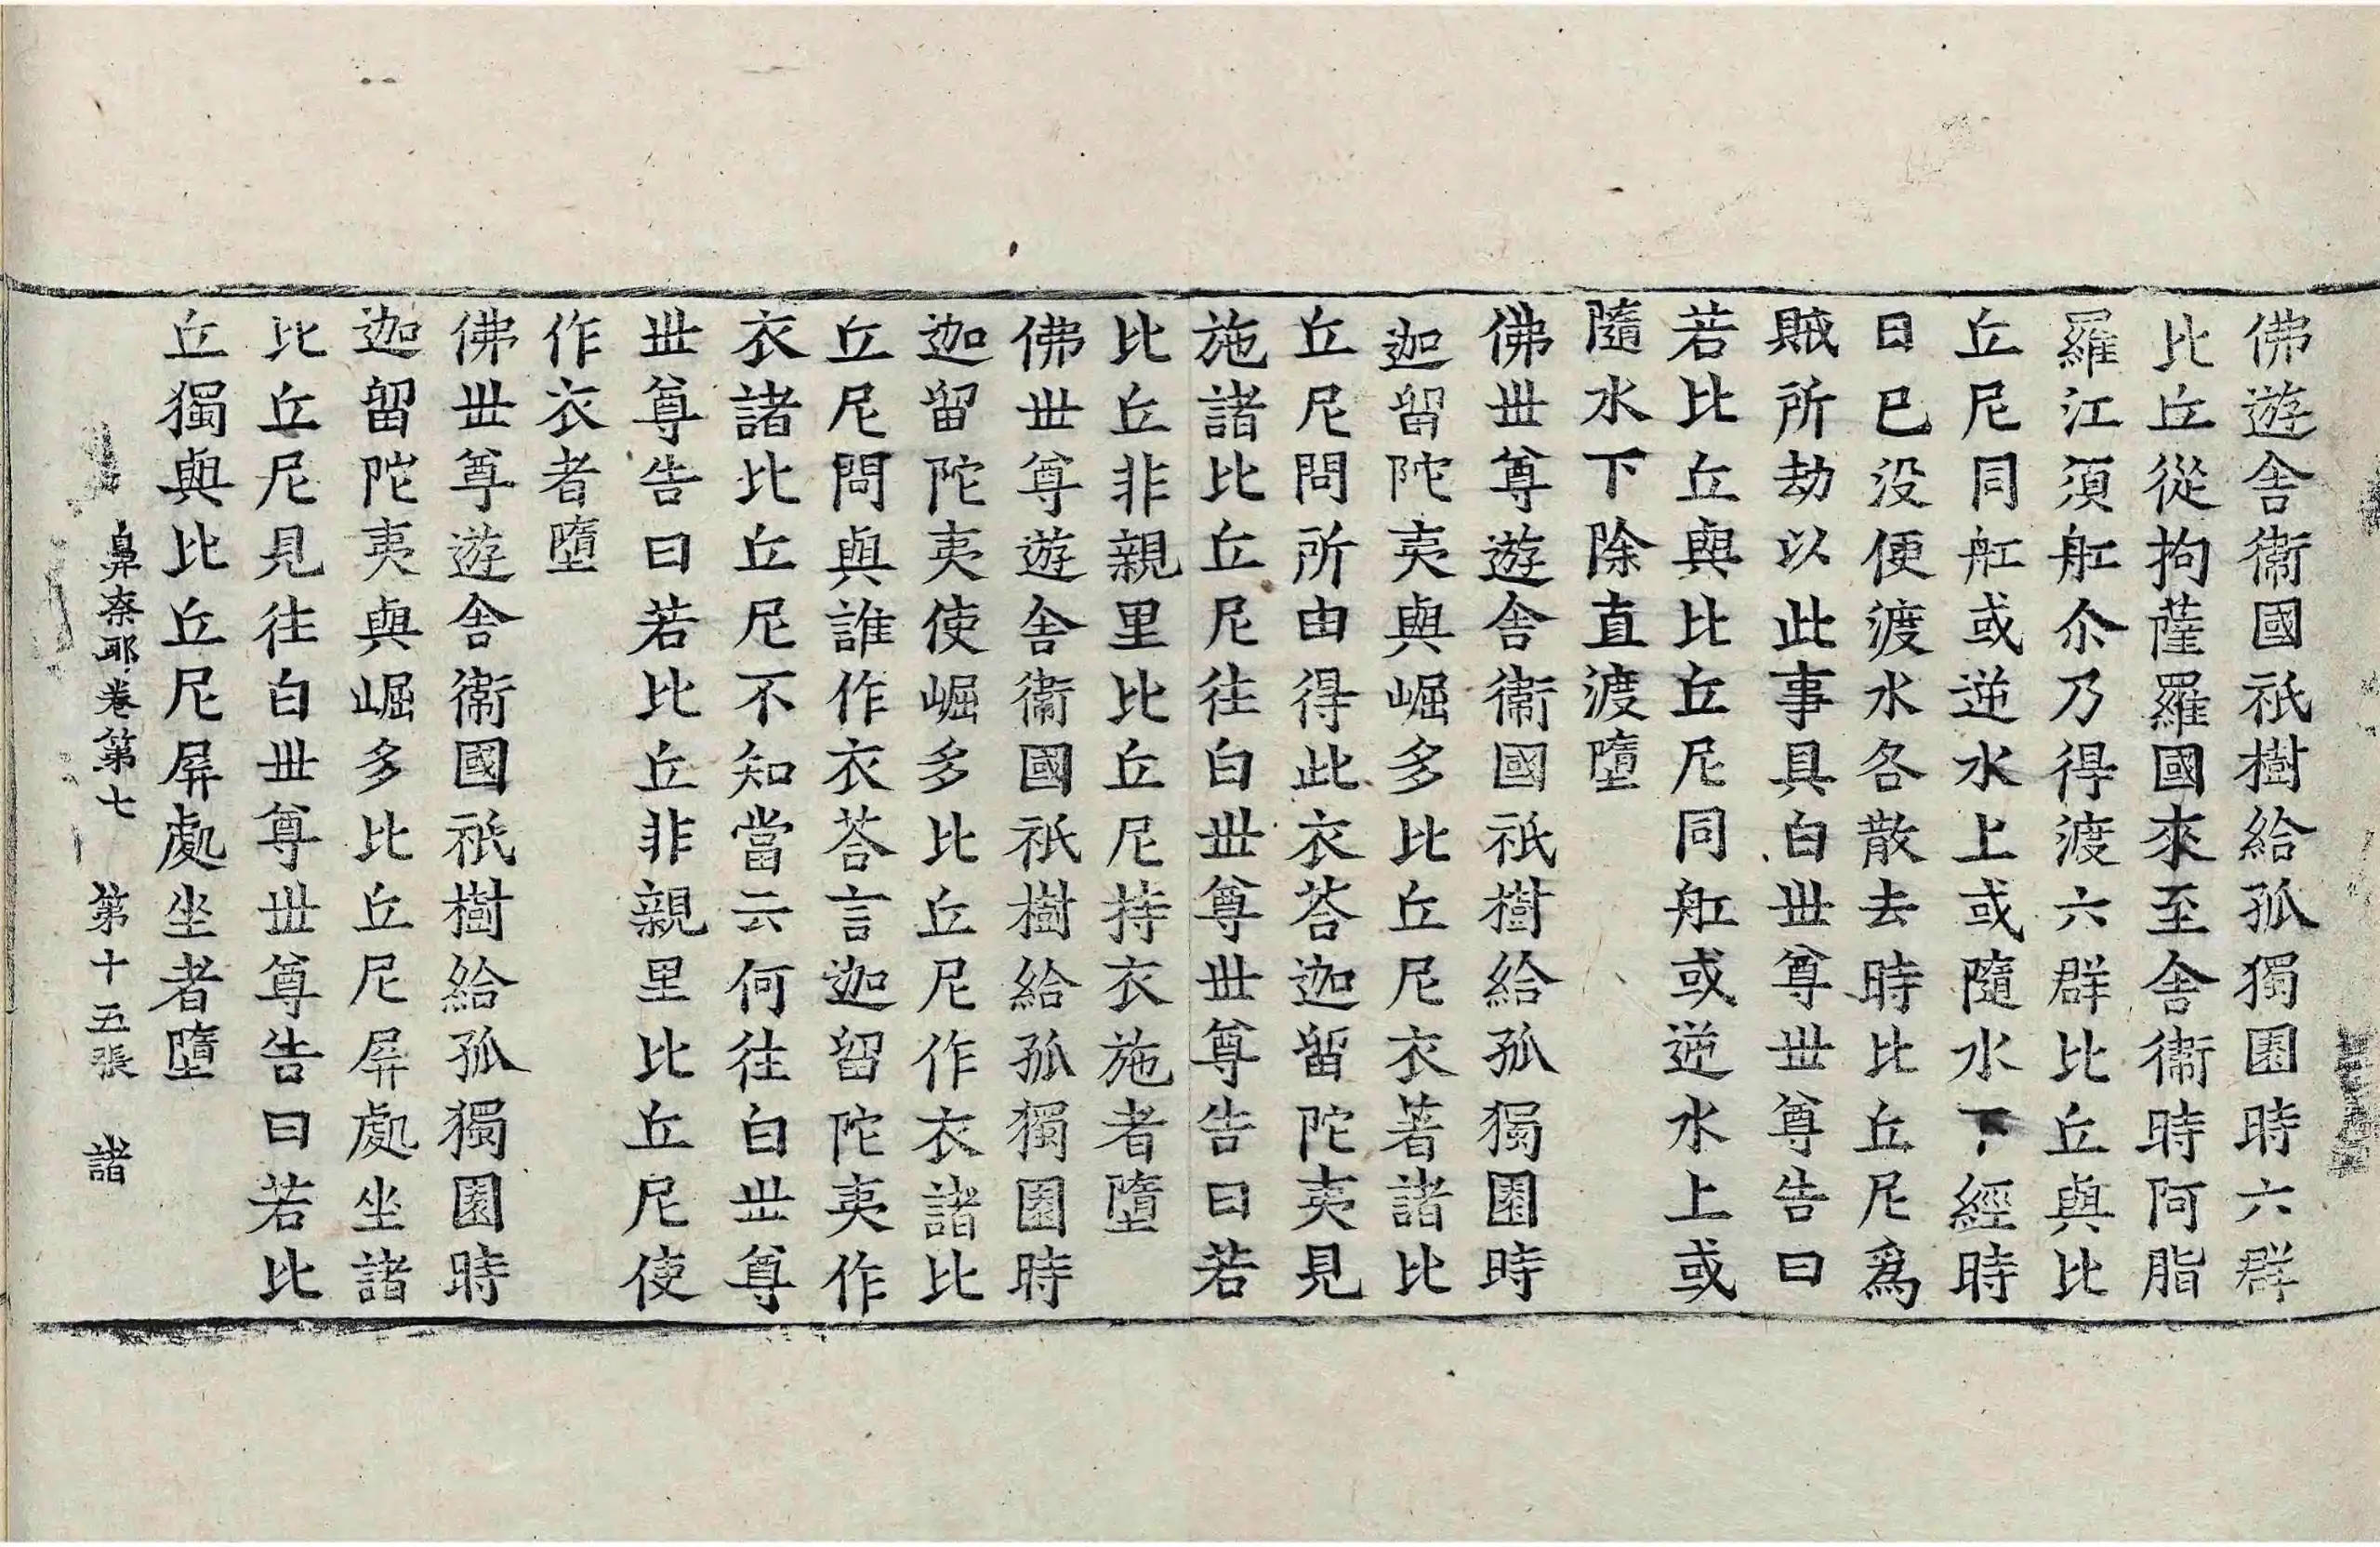 佛遊舎衛國祇樹給孤獨園時六群
比丘從拘薩羅國來至舎衛時阿脂
羅江須舡尒乃得渡六群比丘與比
丘尼同舡或逆水上或隨水下經時
日已没便渡水各散去時比丘尼爲
賊所劫以此事具白丗尊丗尊告曰
若比丘與比丘尼同舡或逆水上或
隨水下除直渡墮
佛丗尊遊舎衛國祇樹給孤獨園時
迦留陀夷與崛多比丘尼衣著諸比
丘尼問所由得此衣荅迦留陀夷見
施諸比丘尼往白丗尊丗尊告曰若
比丘非親里比丘尼持衣施者墮
佛丗尊遊舎衛國祇樹給孤獨園時
迦留陀夷使崛多比丘尼作衣諸比
丘尼問與誰作衣荅言迦留陀夷作
衣諸比丘尼不知當云何往白丗尊
丗尊告曰若比丘非親里比丘尼使
作衣者墮
佛丗尊遊舎衛國祇樹給孤獨園時
迦留陀夷與崛多比丘尼屏處坐諸
比丘尼見往白丗尊丗尊告曰若比
丘獨與比丘尼屏處坐者墮
鼻柰耶卷第七 第十五張 諸